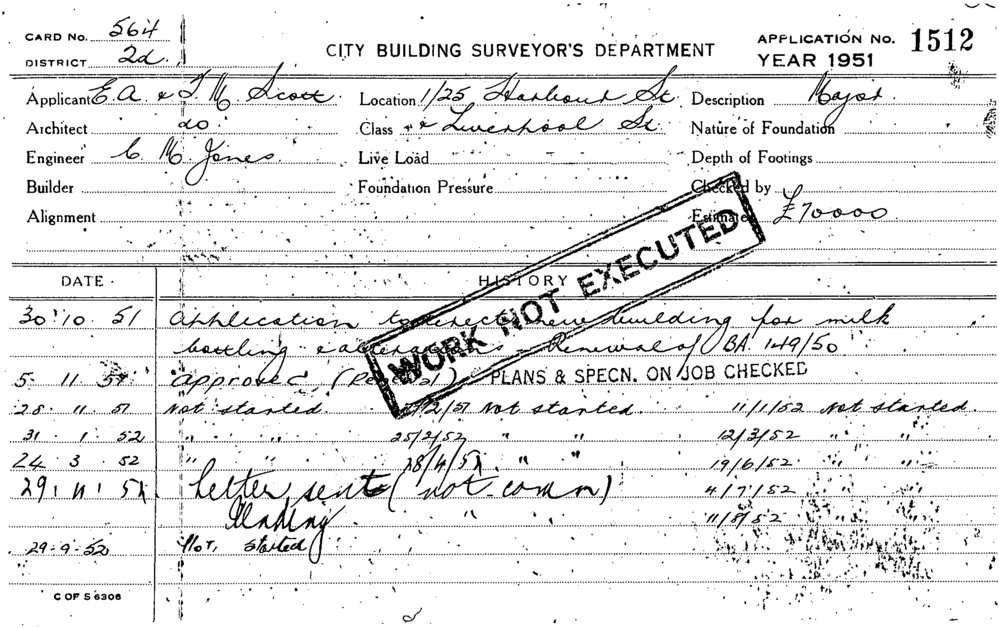 CARD No. 564
DISTRICT 2d.
CITY BUILDING SURVEYOR'S DEPARTMENT
APPLICATION No. 1512
YEAR 1951
Applicant E.A. & T. M Scott Location 1/25 Harbour St Description Major
Architect do Class & Liverpool St Nature of Foundation
Engineer C M Jones Live Load Depth of Footings
Builder Foundation Pressure Checked by
Alignment Estimated £70000
WORK NOT EXECUTED
DATE HISTORY
30.10.51 Application to erect new building for milk
bottling & alterations - Renewal of BA 149/50
5.11.51 Approved (Renewal) PLANS & SPECN. ON JOB CHECKED
28.11.51 Not started. Not started. 11/1/52 Not started.
31.1.52 " " 25/2/52 " " 12/3/52 " "
24.3.52 " " 28/4/52 " " 19/6/52 " "
Letter sent (not comm) 4/7/52 " "
" " 11/8/52 " "
29.9.52 Not started
C OF S 6306